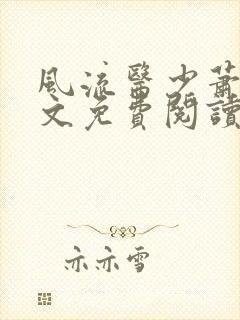 風流醫少蕭
文免費閱讀
亦亦雪